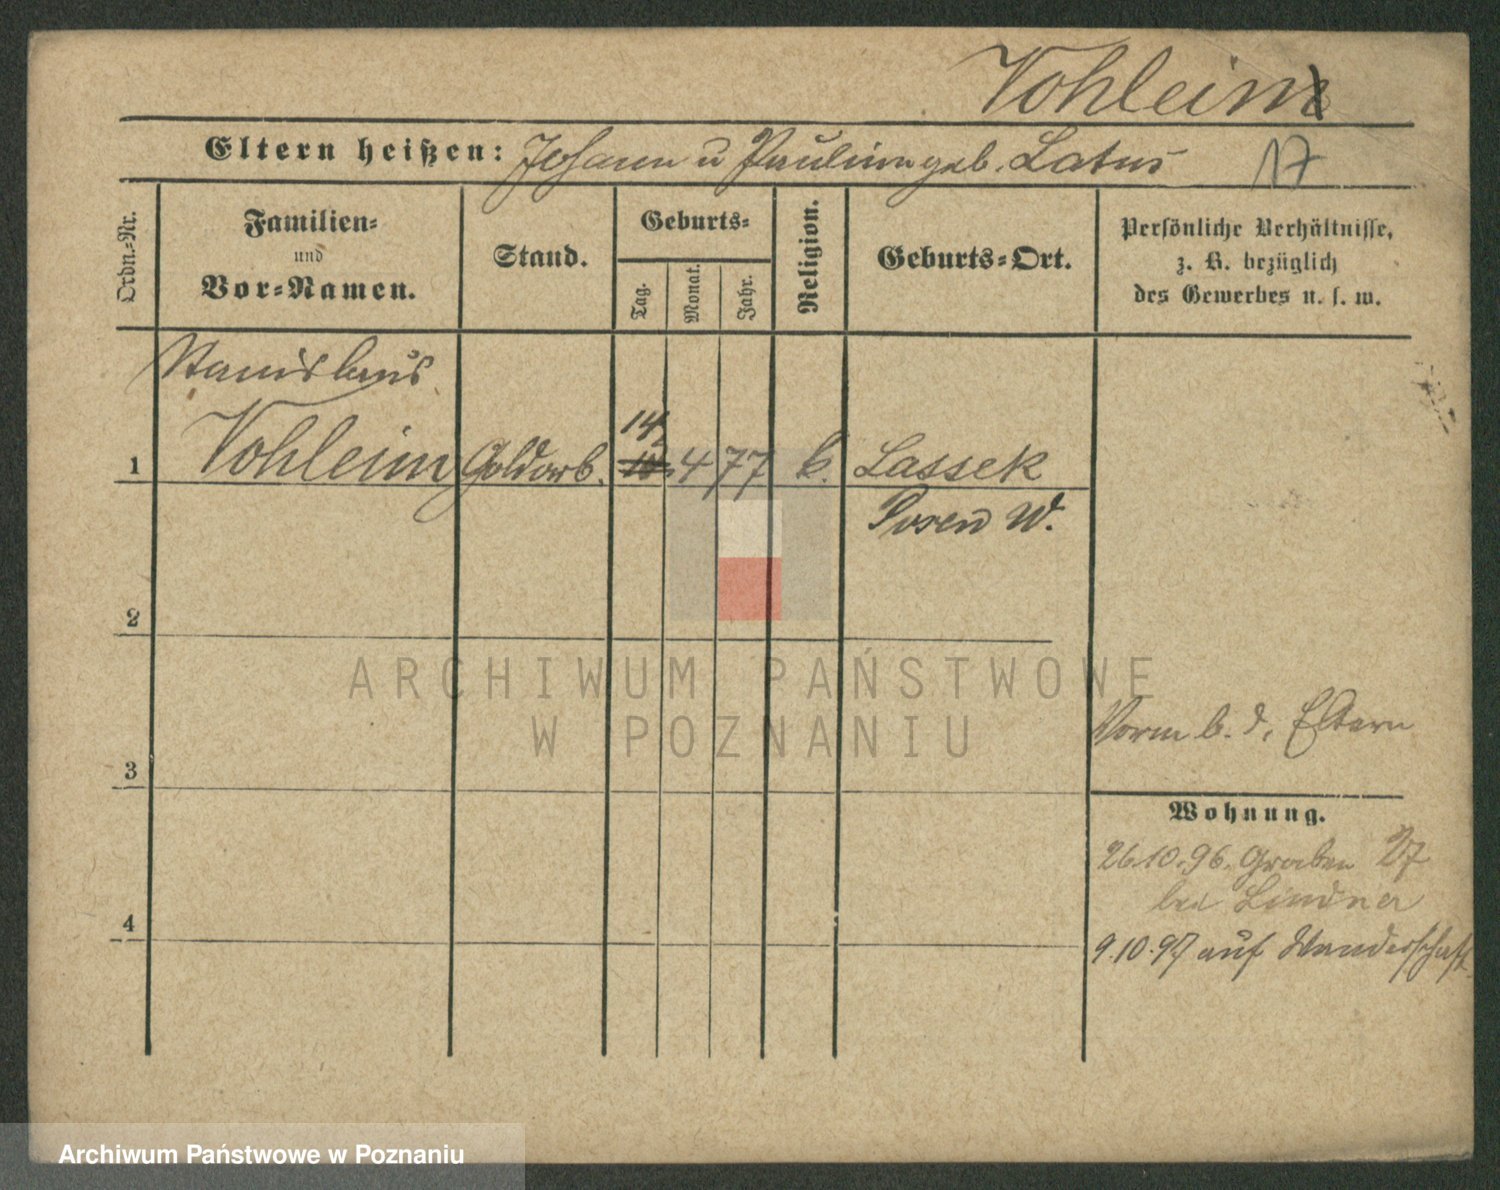 Vohleim
Eltern heißen: Johann u Pauline geb. Latus 17
Ordn.-Nr.
Familien- und Vor-Namen.
Stand.
Geburts-
Tag.
Monat.
Jahr.
Religion.
Geburts-Ort.
Persönliche Verhältnisse,
z. B. bezüglich
des Gewerbes u. s. w.
Stanislaus
14
1 Vohleim Goldarb. 4 77 k. Lassek
Posen W.
2
ARCHIWUM PAŃSTWOWE
W POZNANIU
Vorm b. d. Eltern
3
Wohnung.
26.10.96. Graben 27
bei Lindner
4
9.10.97 auf Wanderschaft
Archiwum Państwowe w Poznaniu